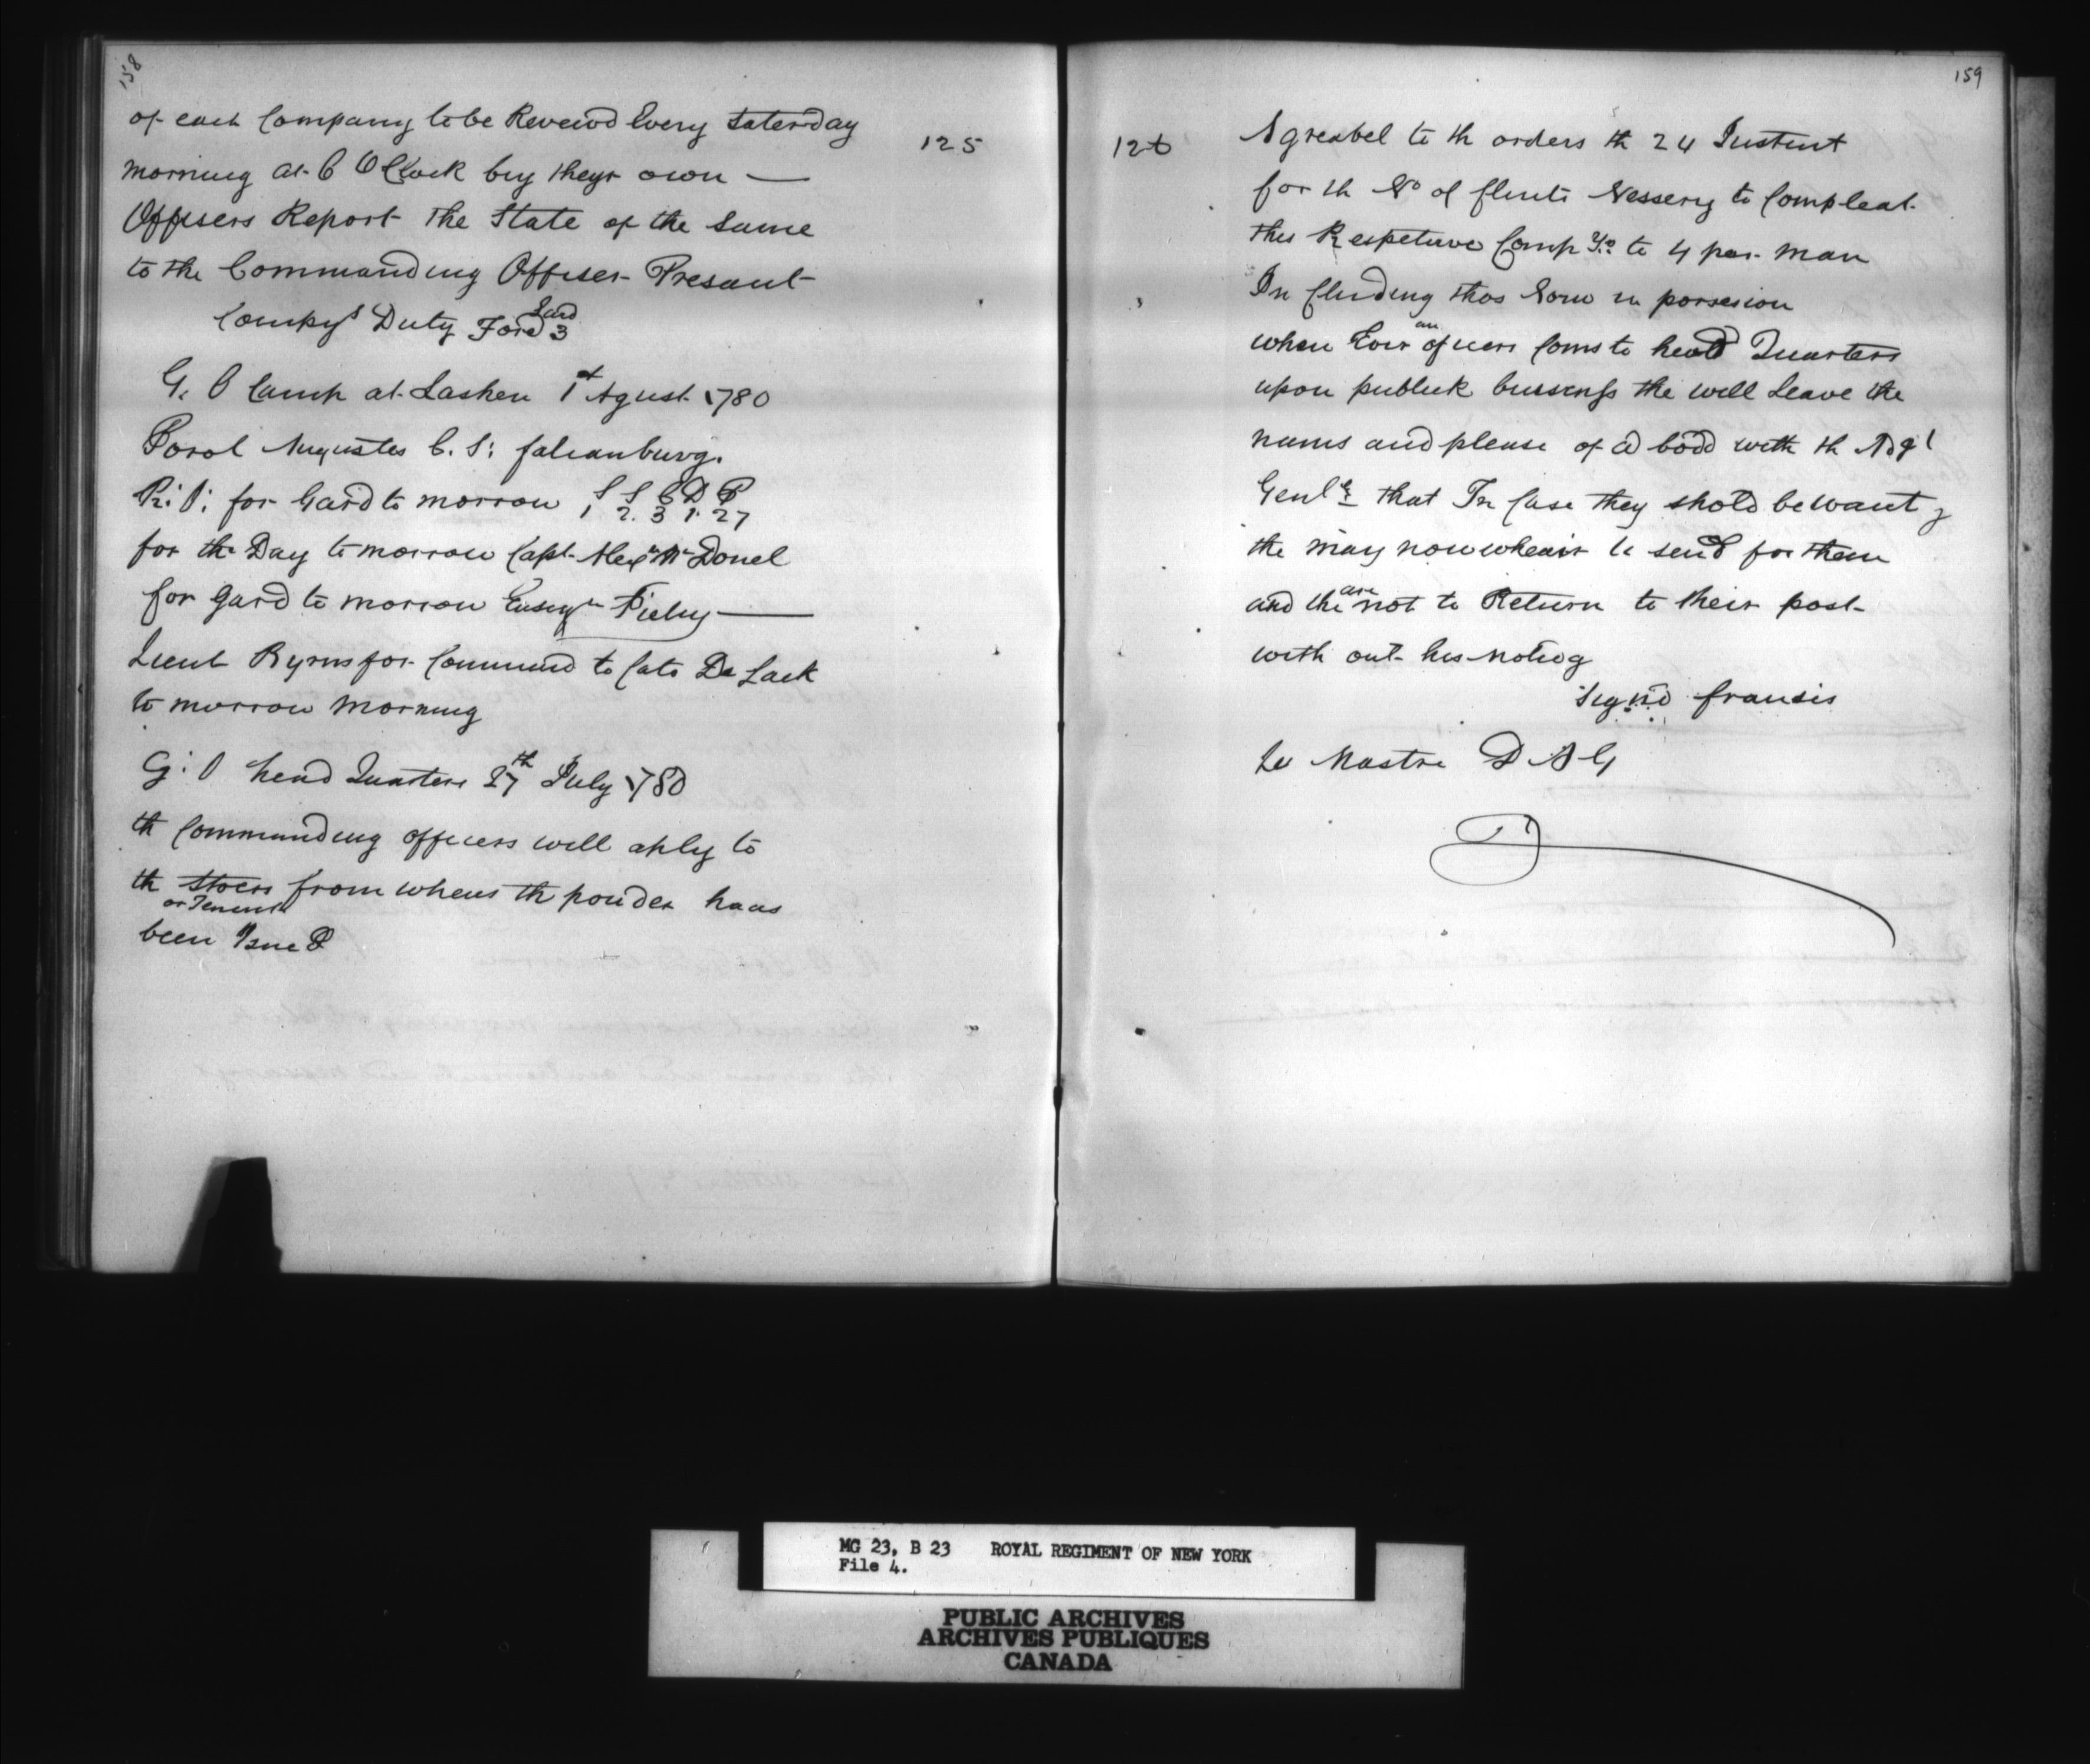 158
of each Company to be Revewd Every Saterday
125
morning at 6 OClock buy theyr own —
Offisers Report The State of the Same
to the Commanding Offiser Presant
Compys Duty Ford 3
G. O Camp at Lashen 1st Agust 1780
Parol Augustes C. S: falcanburg.
R: O: for Gard to morrow S S C D P
1 2. 3 1. 27
for the Day to morrow Capt. Alexr Mc Donel
for Gard to morrow Ensign
Lieut Byrns for Command to Coto De Lack
to morrow Morning
G: O head Quarters 27th July 1780
th Commanding officers will aply to
th Stoers from whens th pouder haas
or
been Isued
159
126
Agreabel to th orders th 24 Instent
for th No of flints Nessery to Compleat
ther Respetieve Compys to 4 par man
In Cluding thos Now in porsesion
when Ever an oficers Coms to head Quarters
upon publick bussness the will Leave the
nams and please of a bodd with th Adjt
Genl that In Case they shold be want
the may now wheair to send for them
and the are not to Return to their post
with out his notieg
Signd fransis
Le Mastre D A G
MG 23, B 23 ROYAL REGIMENT OF NEW YORK
File 4.
PUBLIC ARCHIVES
ARCHIVES PUBLIQUES
CANADA